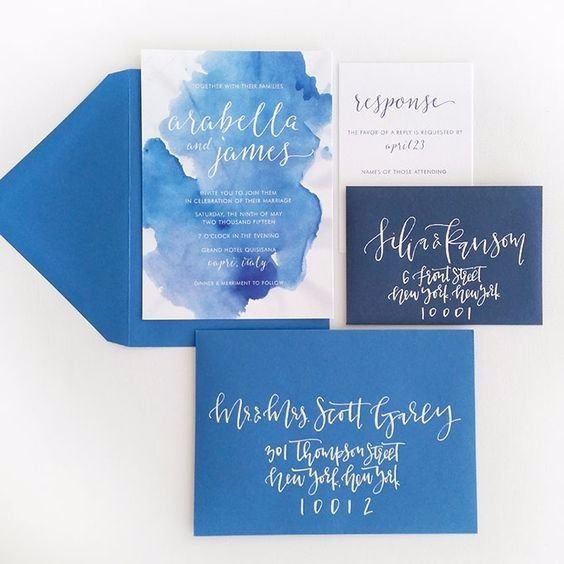 TOGETHER WITH THEIR FAMILIES
arabella
and james
INVITE YOU TO JOIN THEM
IN CELEBRATION OF THEIR MARRIAGE
SATURDAY, THE NINTH OF MAY
TWO THOUSAND FIFTEEN
7 O'CLOCK IN THE EVENING
GRAND HOTEL QUISISANA
capri, italy
DINNER & MERRIMENT TO FOLLOW
response
THE FAVOR OF A REPLY IS REQUESTED BY
april 23
NAMES OF THOSE ATTENDING
6 Front Street
New York, New York
10001
Mr. & Mrs. Scott Garey
301 Thompson Street
New York, New York
10012